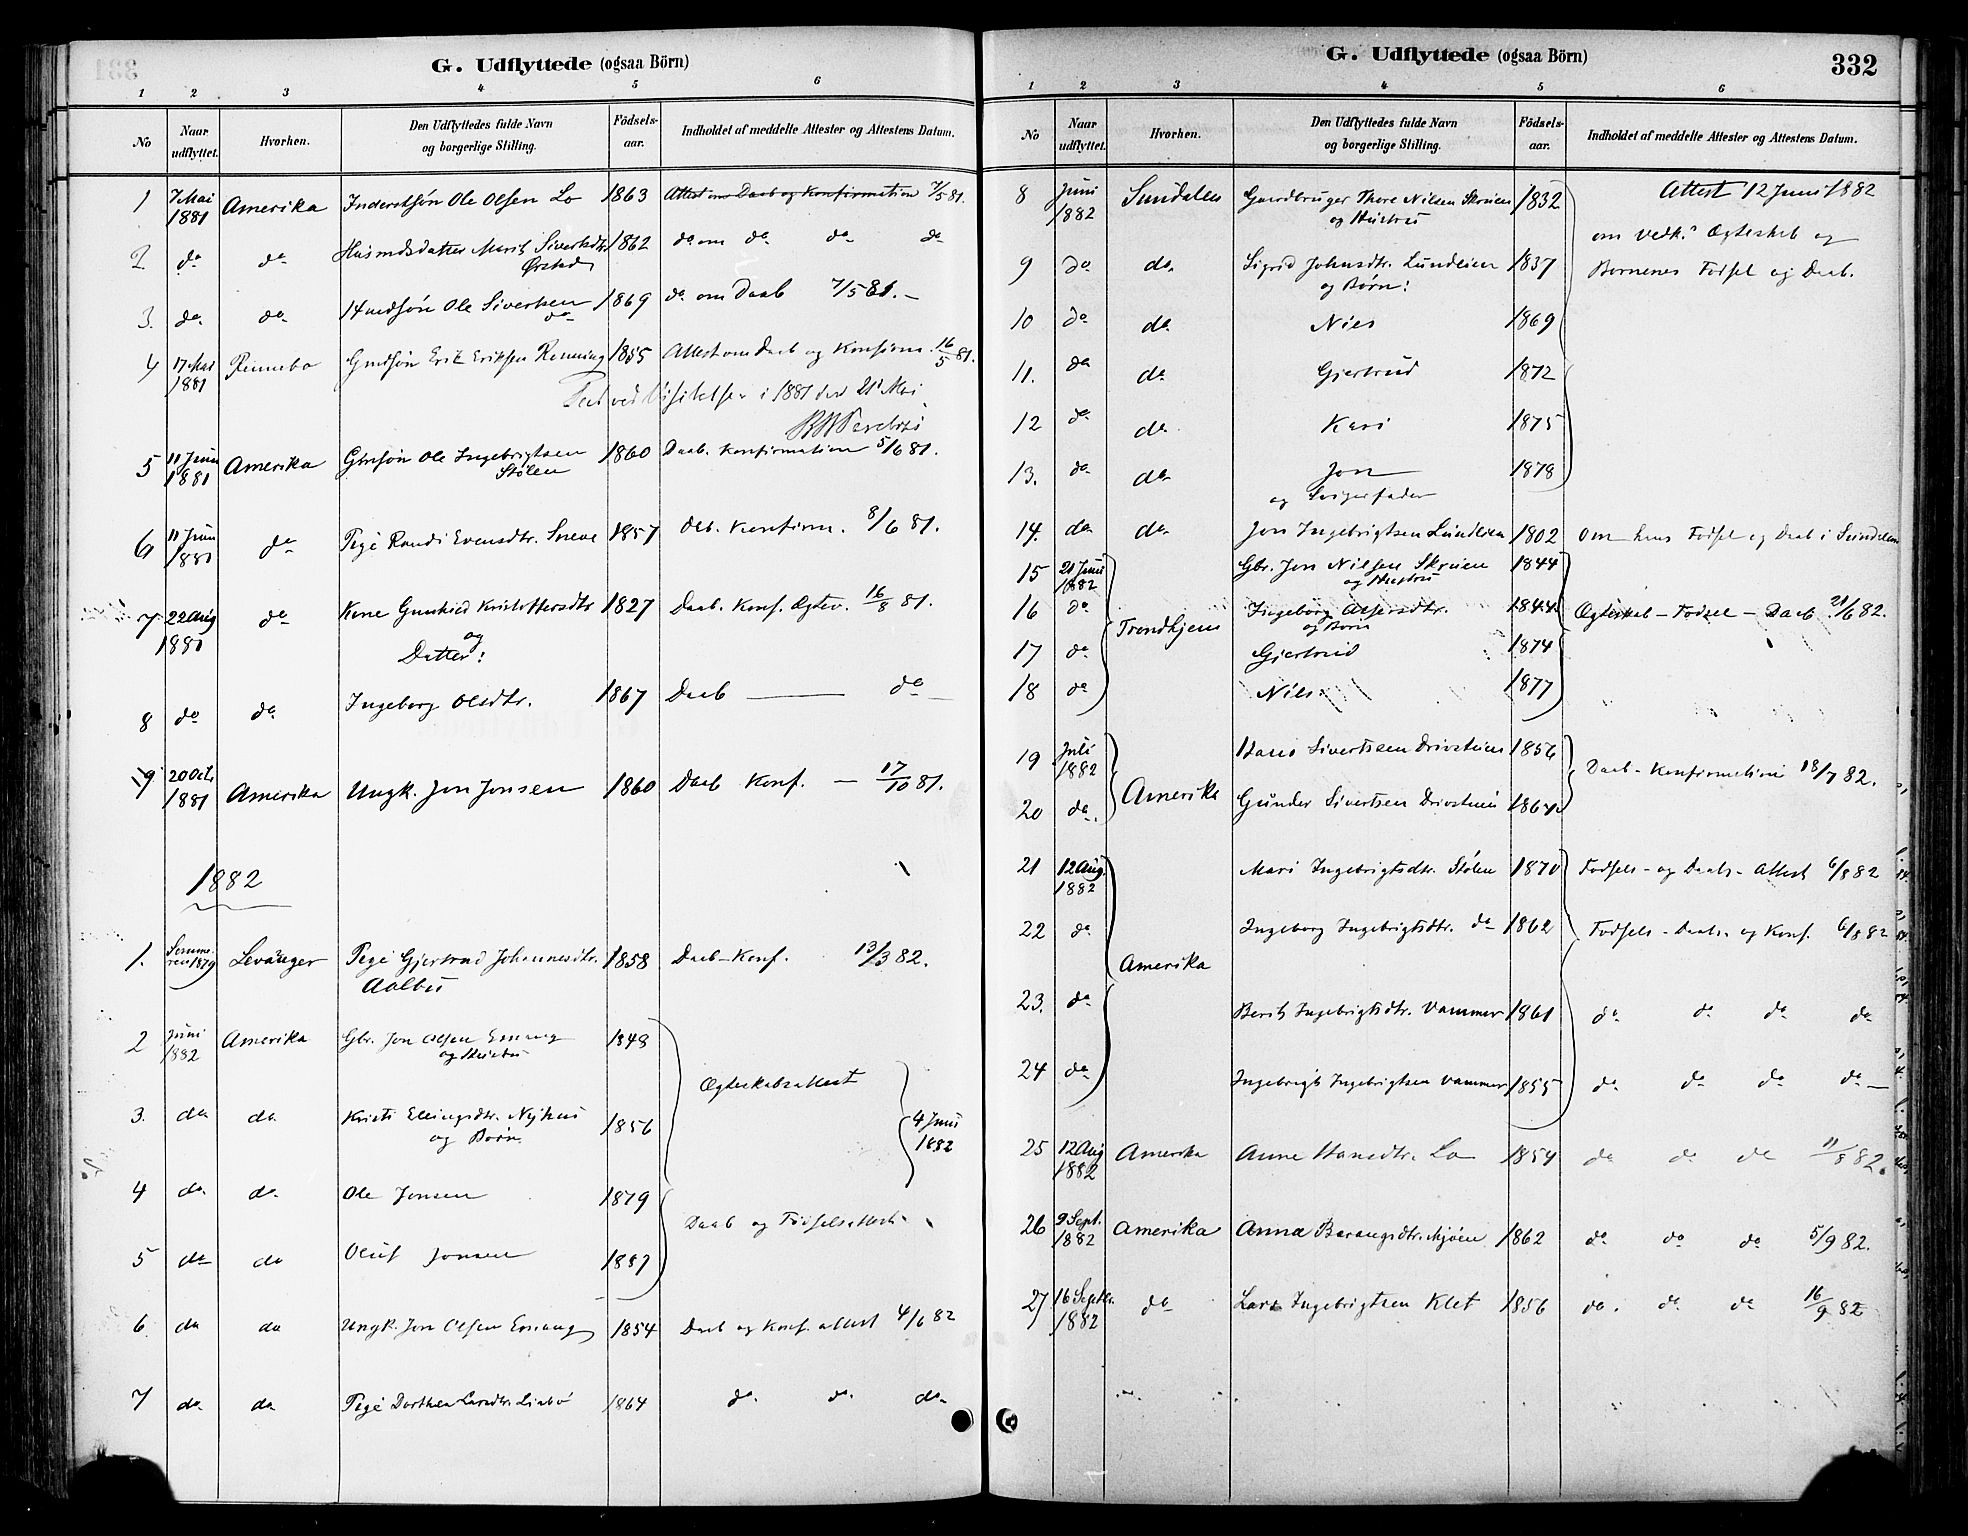 G. Udflyttede (ogsaa Börn)
1 2 3 4 5 6
No Naar udflyttet. Hvorhen. Den Udflyttedes fulde Navn og borgerlige Stilling. Födsels-aar. Indholdet af meddelte Attester og Attestens Datum.
1 7 Mai 1881 Amerika Inderstsøn Ole Olsen Lo 1863 Attest om Daab og Konfirmation 7/5 81.
2 do do Husmdsdatter Marit Sivertsdtr. 1862 do om do do do
Ørstad
3. do do Hmdsøn Ole Sivertsen 1869 do om Daab 7/5 81. –
do
4 17 Mai 1881 Rennebo Gmdsøn Erik Eriksen Renning 1855 Attest om Daab og Konfirm. 16/5 81.
Seet ved Visitatsen i 1881 den 21 Mai
5 11 Juni 1881 Amerika Gbrsøn Ole Ingebrigtsen 1860 Daab. Konfirmation 5/6 81.
Stølen
6 11 Juni 1881 do Pige Randi Evensdtr. Sneve 1857 Daab. Konfirm. 8/6 81.
7 22 Aug 1881 do Kone Gunhild Kristoffersdtr 1827 Daab. Konf. Ægtev. 16/8 81.
og
Datter:
8 do do Ingeborg Olsdtr. 1867 Daab — do
9 20 Oct. 1881 Amerika Ungk. Jon Jonsen 1860 Daab Konf. – 17/10 81.
1882
1. Sommeren 1879 Levanger Pige Gjertrud Johannesdtr. 1858 Daab – Konf. 13/3 82.
Aalbu
2 Juni 1882 Amerika Gbr. Jon Olsen Emaug 1848
og Hustru
Ægteskabsattest
3. do do Kristi Ellingsdtr. Nyhus 1856 4 Juni 1882
og Børn
4 do do Ole Jonsen 1879
Daab og Fødselsattest
5 do do Oluf Jonsen
6 do do Ungk. Jon Olsen Emaug 1854 Daab og Konf. attest 4/6 82
7 do do Pige Dorthea Larsdtr. 1864 do do do
G. Udflyttede (ogsaa Börn) 332
1 2 3 4 5 6
No Naar udflyttet. Hvorhen. Den Udflyttedes fulde Navn og borgerlige Stilling. Födsels-aar. Indholdet af meddelte Attester og Attestens Datum.
8 Juni 1882 Sundalen Gaardbruger Thore Nilsen Skruen 1832 Attest 12 Juni 1882
og Hustru
om vedk.s Ægteskab og
9 do do Sigrid Johnsdtr. Lundlien 1837 Børnenes Fødsel og Daab.
og Børn:
10 do do Nils 1869
11. do do Gjertrud 1872
12 do do Kari 1875
13. do do Jon 1878
og Svigerfader
14. do do Jon Ingebrigtsen Lundlien 1802 Om hans Fødsel og Daab i Sundalen
15 21 Juni 1882 Gbr. Jon Nilsen Skruen 1844
og Hustru
16 do Trondhjem Ingeborg Olsdtr. 1844 Ægteskab – Fødsel – Daab 21/6 82.
og Børn
17 do Gjertrud 1874
18 do Nils 1877
19 Juli 1882 Hans Sivertsen Drivstuen 1856
Daab – Konfirmation 18/7 82.
20 do. Amerika Gunder Sivertsen Drivstuen
21 12 Aug. 1882 Mari Ingebrigtsdtr. Stølen 1870 Fødsels – og Daabs – Attest 6/8 82
22 do Ingeborg Ingebrigtsdtr. do 1862 Fødsels – Daabs – og Konf. 6/8 82
Amerika
23. do Berit Ingebrigtsdtr. Vammer 1861 do do do do
24 do Ingebrigt Ingebrigtsen Vammer 1855 do do do do –
25 12 Aug 1882 Amerika Anne Hansdtr. Lo 1854 do do do 11/8 82.
26 9 Sept. 1882 Amerika Anna Mjøen 1862 do do do 5/9 82.
27 16 Septbr. 1882 do Lars Ingebrigtsen Klet 1856 do. do do 16/9 82